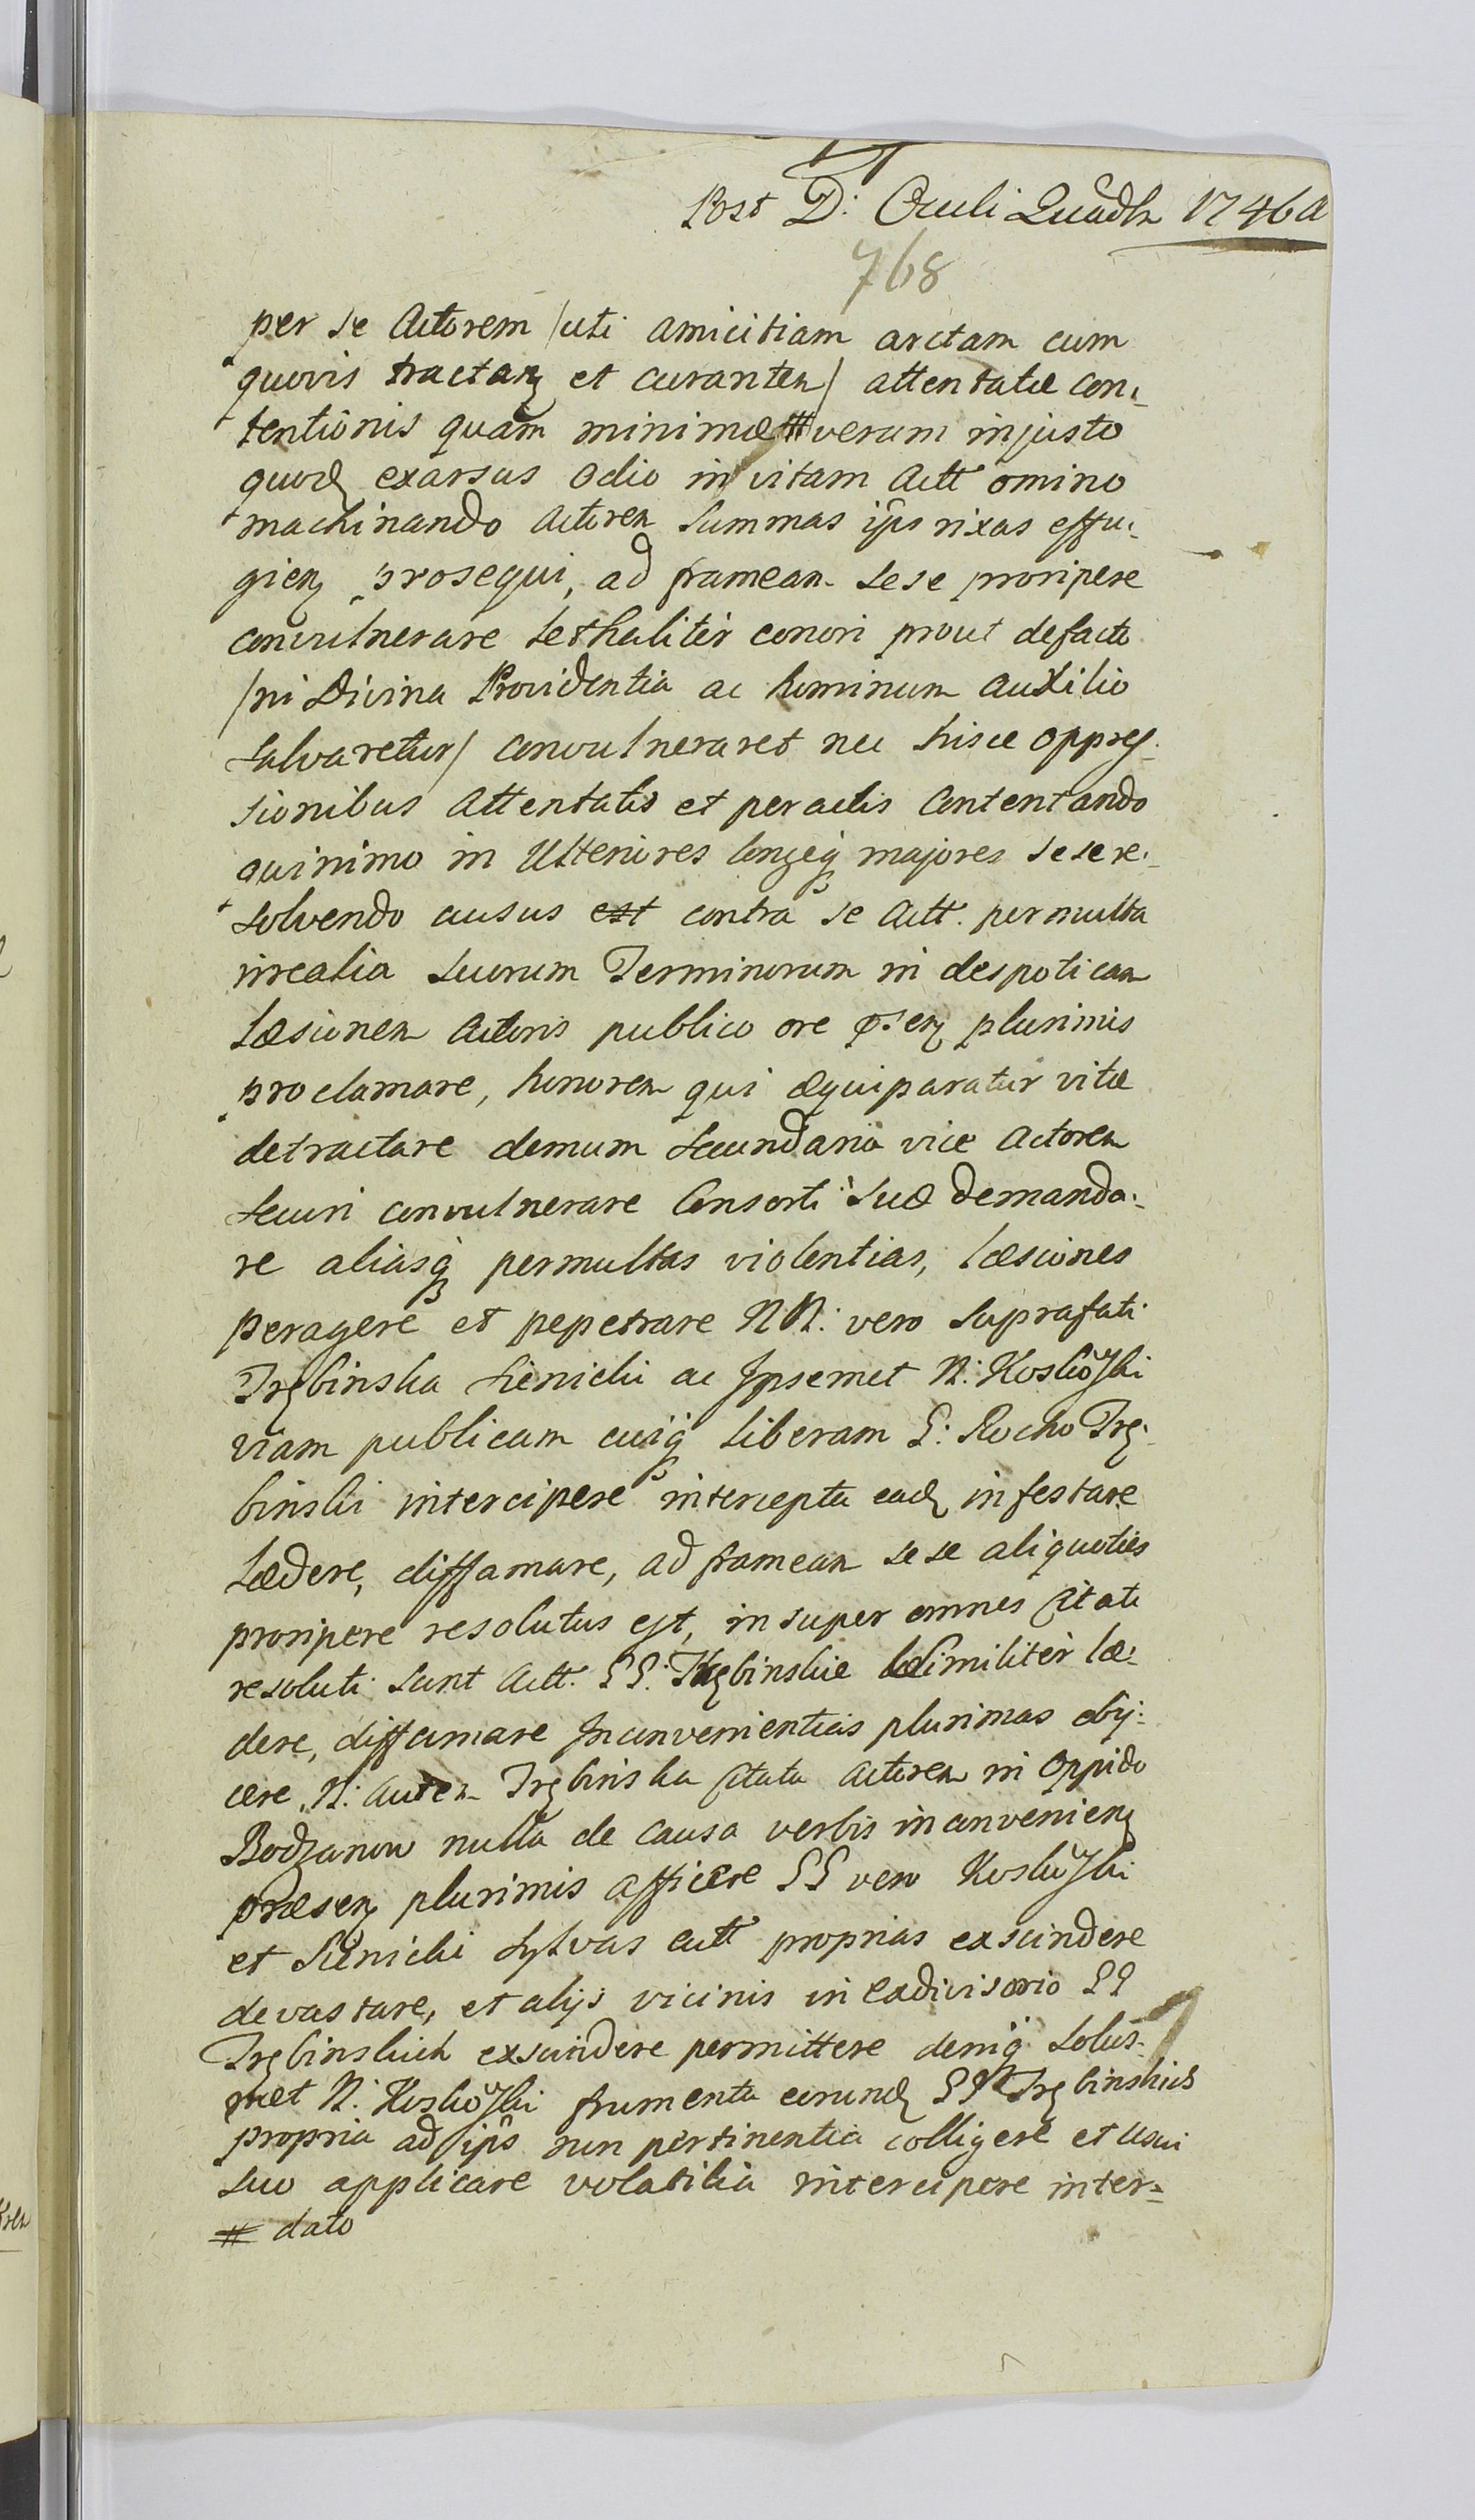 Post D: Oculi Quadh 1746 a
768
per se Actorem /uti amicitiam arctam cum
quovis tractanz et curantem/ attentatæ con-
tentionis quam minimæ # verum injusto
quodz exarsus odio in vitam Actt omino
machinando Actorem summas ips rixas effu-
gienz prosequi, ad frameam sese proripere
convulnerare lethaliter conori prout defacto
/ni Divina Providentia ac hominum auxilio
salvaretur/ convulneraret nec hisce oppres-
sionibus attentatis et peractis contentando
quinimo in Ulteriores longeq majores sese re-
solvendo ausus est contra se Actt. permulta
irrealia suorum Terminorum in despoticam
læsionem Actoris publico ore psenz plurimis
proclamare, honorem qui æquiparatur vitæ
detractare demum secundaria vice Actorem
securi convulnerare Consorti suæ demanda-
re aliasq permultas violentias, læsiones
peragere et pepetrare NN: vero suprafati
Trębinska Sienicki ac Ipsemet N: Koskowski
viam publicam cuiq liberam G: Rocho Trę-
binski intercipere intercepta eadz infestare
lædere, diffamare, ad frameam sese aliquoties
proripere resolutus est, insuper omnes citati
resoluti sunt Actt. GG: Trębinskie similiter læ-
dere, diffamare Inconvenientias plurimas obij-
cere, N: autem Trębinska citata Actorem in Oppido
Bodzanow nulla de causa verbis inconvenienz
præsenz plurimis afficere GG vero Koskowski
et Sienicki sylvas Actt proprias exscindere
devastare, et alijs vicinis in exdivisorio GG
Trębinskich exscindere permittere deniq solus-
met N: Koskowski frumenta eorundz GG Trębinskich
propria ad ips non pertinentia colligere et usui
suo applicare volatilia intercipere inter-
# dato